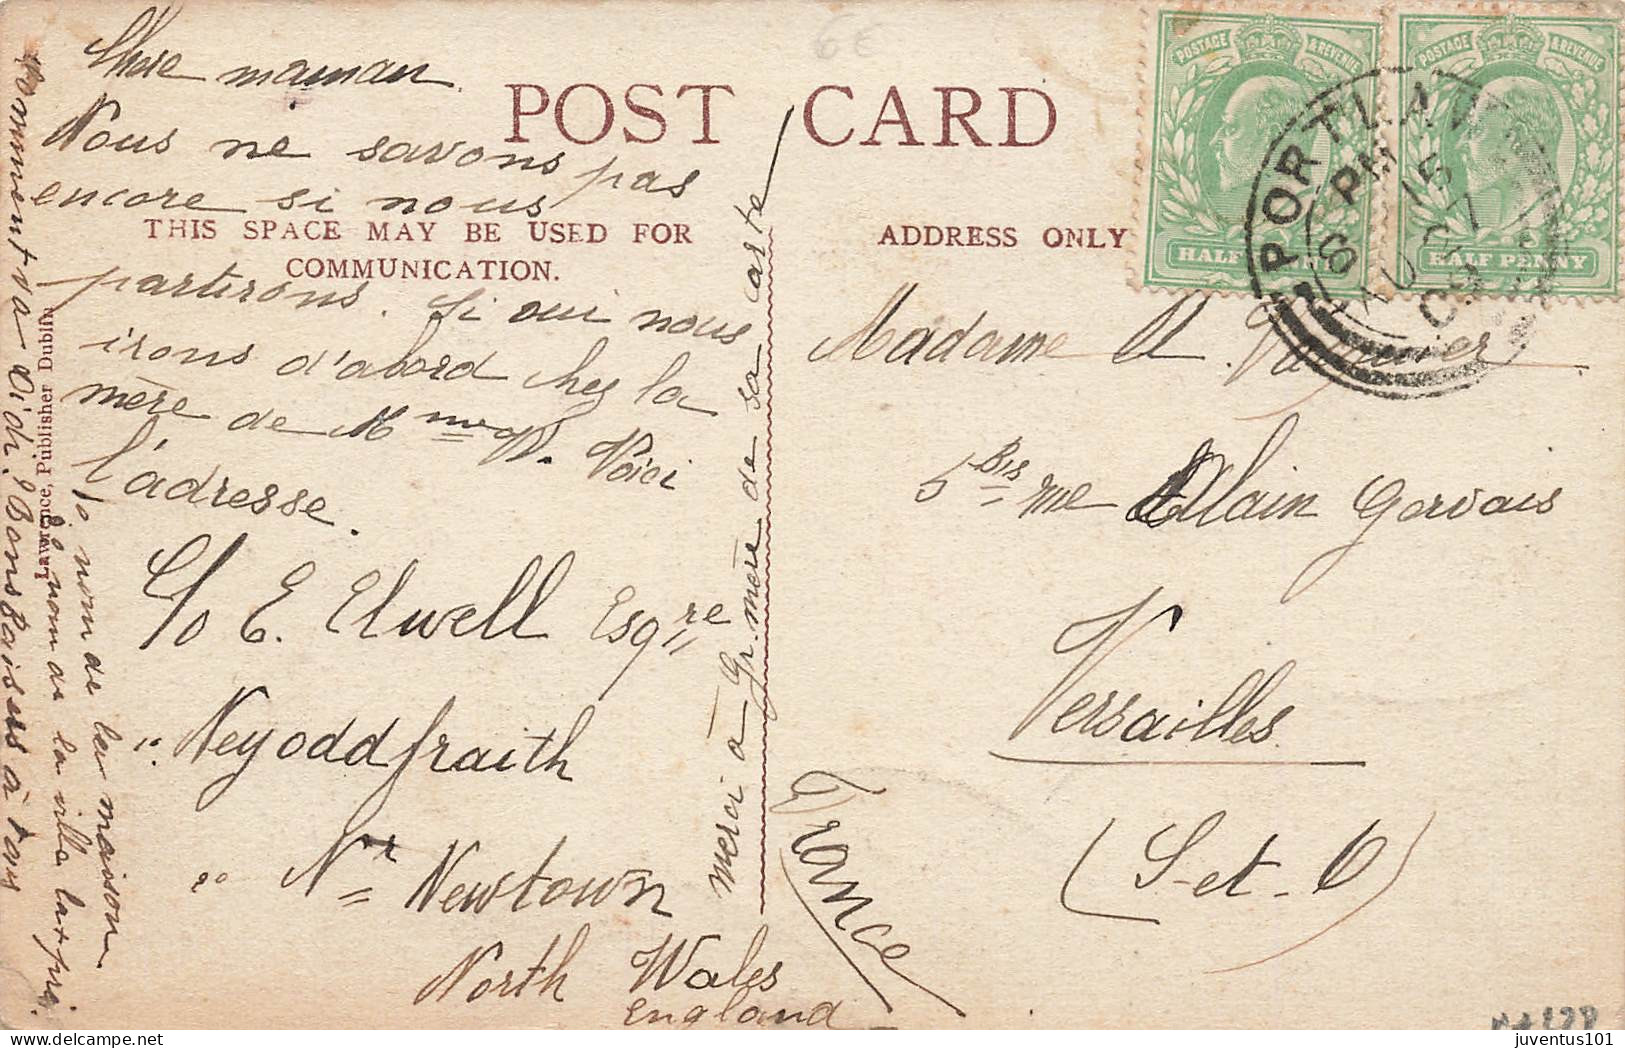 Chère maman
Nous ne savons pas
encore si nous
partirons. Si oui nous
irons d'abord chez la
mère de Mme W. Voici
l'adresse.
C/o E. Elwell Esqre
Neyoddfraith
Nr Newtown
North Wales
England
1o nom de la maison
2o nom de la ville la + proi.
Comment va Didi? Bons baisers à tous
merci à Gr. mère de sa carte
POST CARD
THIS SPACE MAY BE USED FOR
COMMUNICATION.
ADDRESS ONLY
Lawrence, Publisher Dublin
Madame A.
5 Bis rue Alain Gervais
Versailles
(S-et-O)
France
POSTAGE & REVENUE
HALF PENNY
POSTAGE & REVENUE
HALF PENNY
PORTLAW
8 PM
AU 09
6€
delcampe.net
juventus101